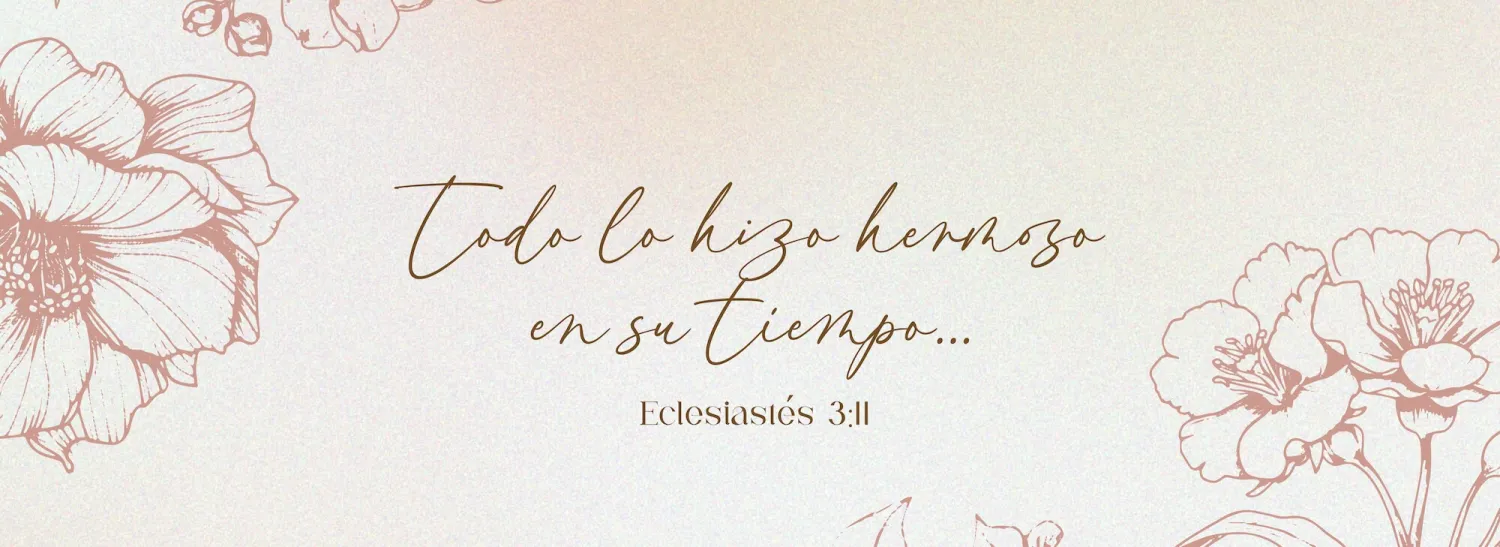 Todo lo hizo hermozo
en su tiempo...
Eclesiastés 3:11